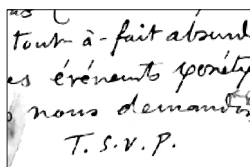 tout-à-fait absurd
es événemts
nous demandon
T.S.V.P.